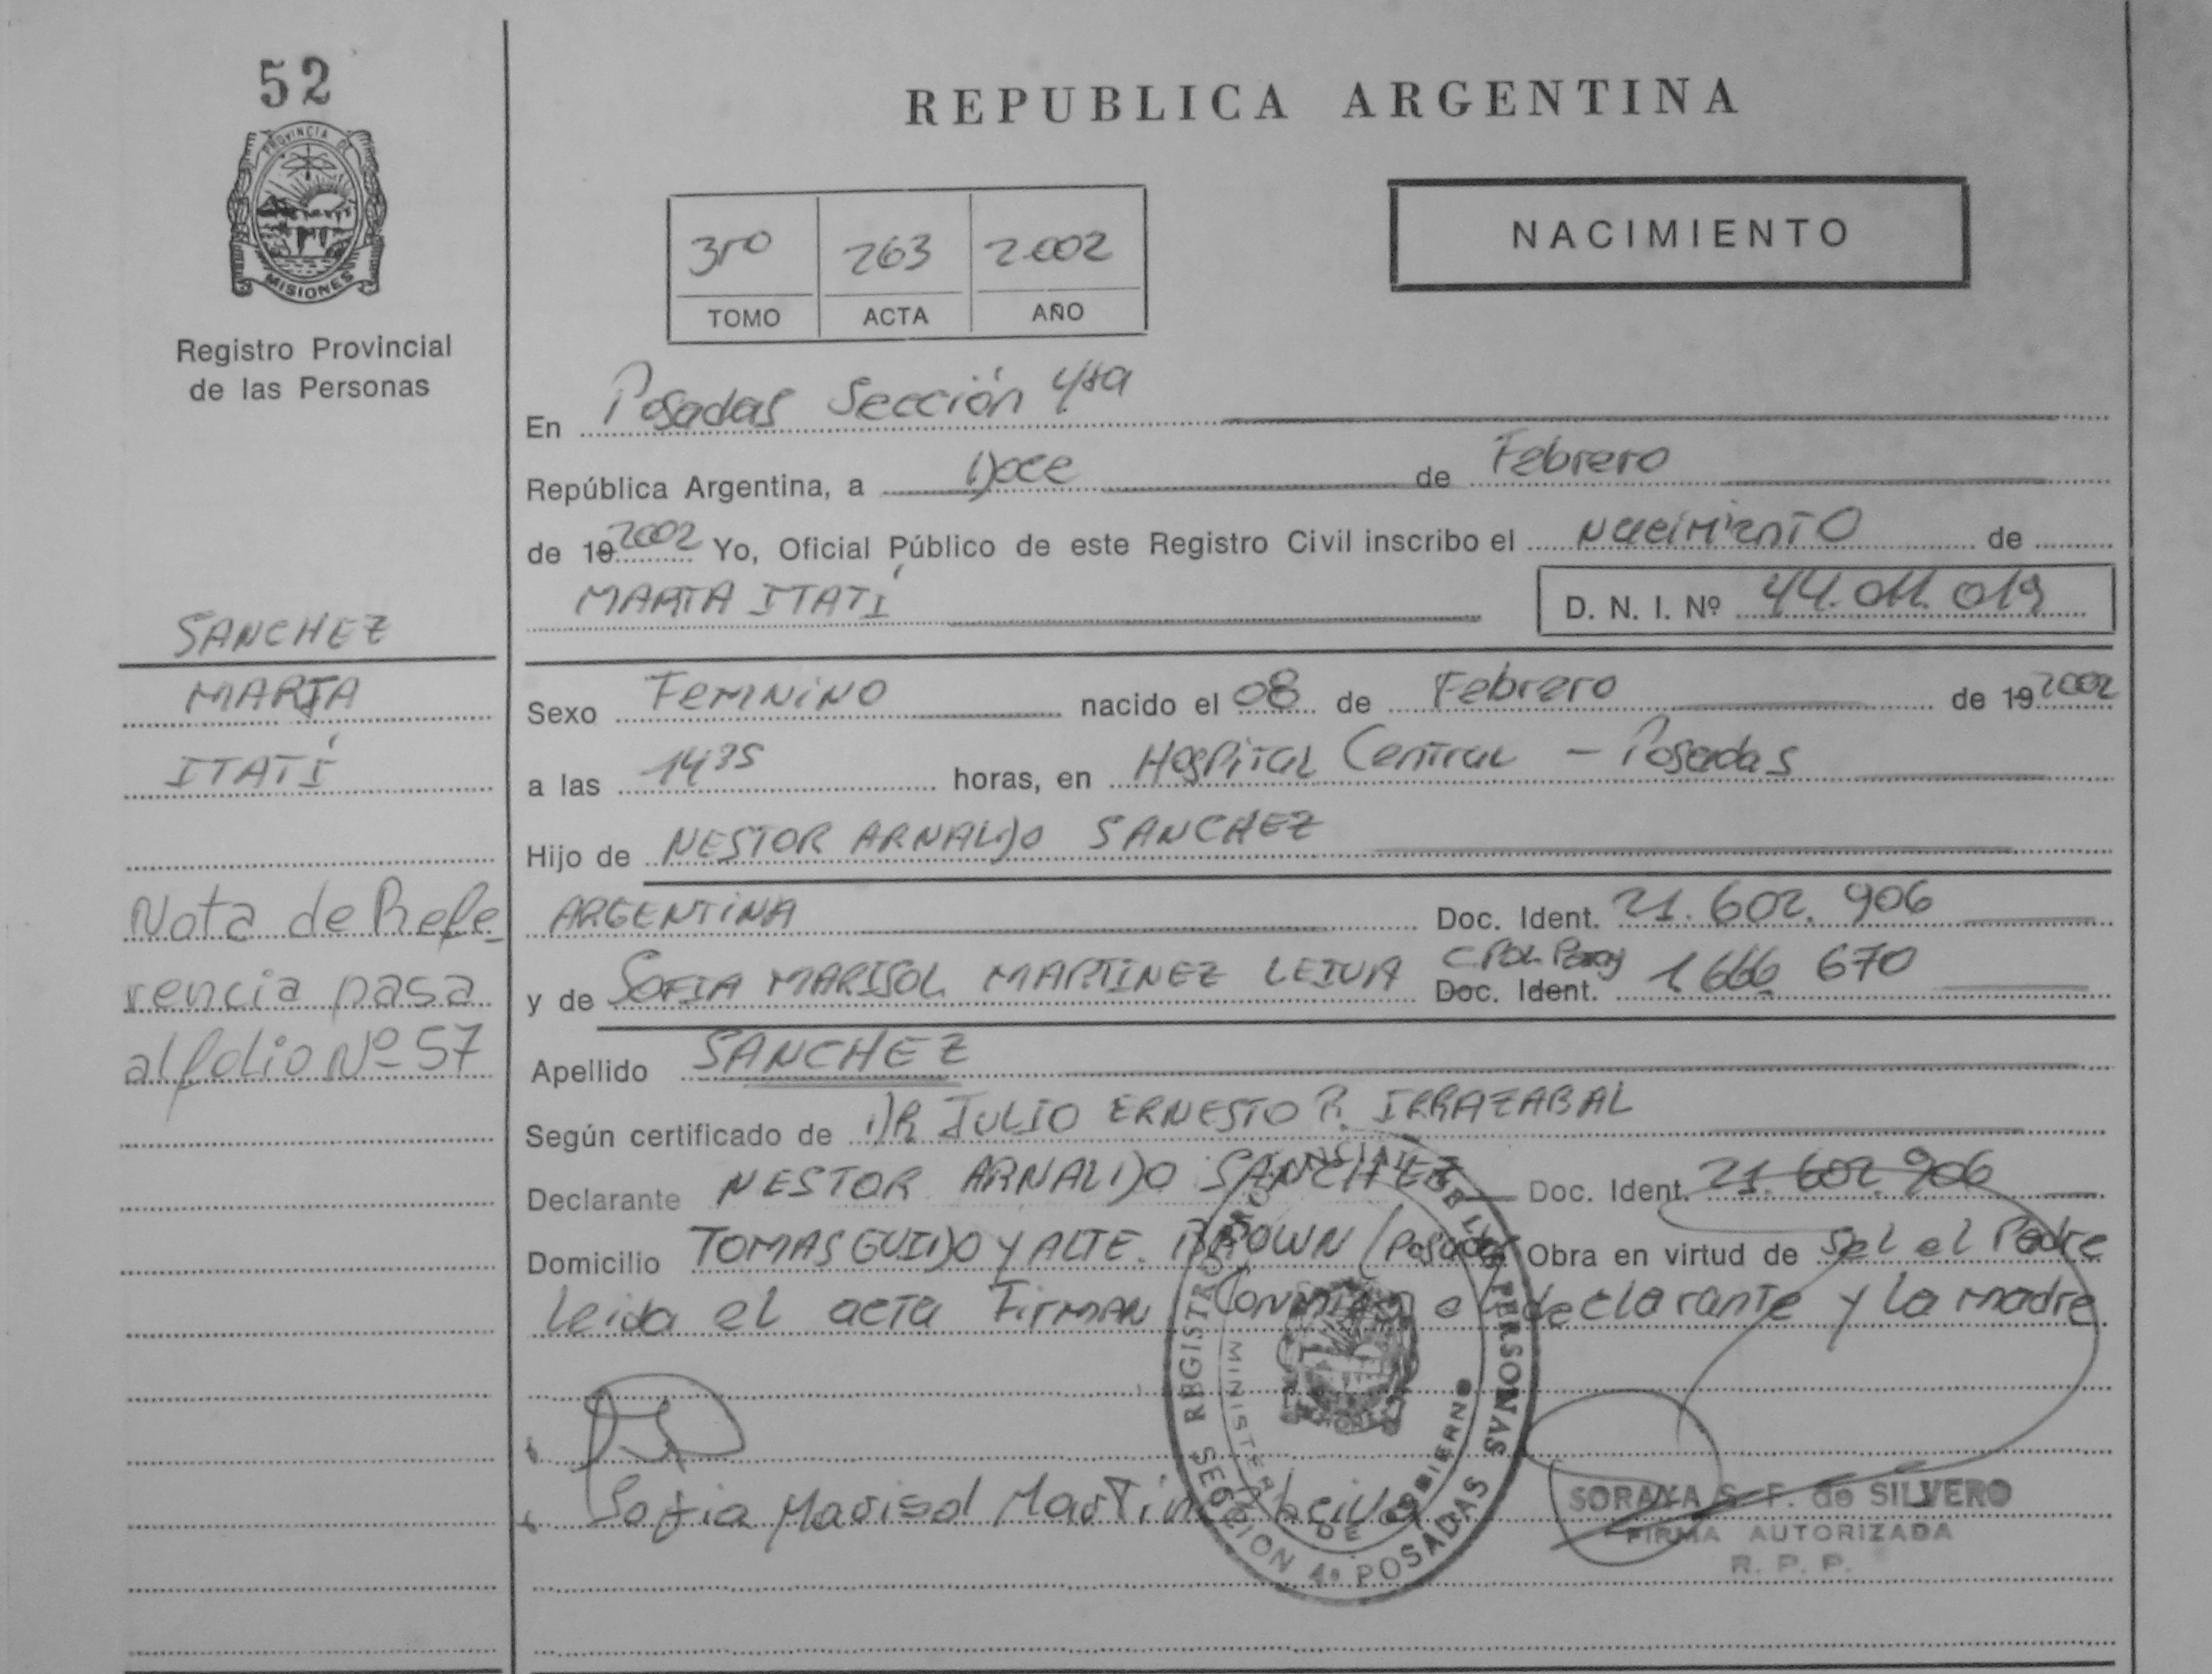 52
PROVINCIA DE
MISIONES
Registro Provincial
de las Personas
REPUBLICA ARGENTINA
3ro 263 2.002
TOMO ACTA AÑO
NACIMIENTO
En Posadas Sección 4ta
República Argentina, a Doce de Febrero
de 19 2002 Yo, Oficial Público de este Registro Civil inscribo el Nacimiento de
MARIA ITATÍ
D. N. I. Nº 44.011.019
SANCHEZ
MARIA
ITATÍ
Nota de Refe
rencia pasa
al folio Nº 57
Sexo FemNiNO nacido el 08 de Febrero de 19 2002
a las 14 35 horas, en Hospital Central - Posadas
Hijo de NESTOR ARNALDO SANCHEZ
ARGENTINA Doc. Ident. 21.602.906
C. Pol. Parag
y de SOFIA MARISOL MARTINEZ LEIVA Doc. Ident. 1 666 670
Apellido SANCHEZ
Según certificado de DR JULIO ERNESTO R. IRRAZABAL
Declarante NESTOR ARNALDO SANCHEZ Doc. Ident. 21.602.906
Domicilio TOMAS GUIDO Y ALTE. BROWN / Posadas Obra en virtud de Sel el Padre
Leida el acta Firman Conmigo el declarante y la madre
Sofia Marisol Martinez Leiva
REGISTRO PROVINCIAL DE LAS PERSONAS
MINISTERIO DE GOBIERNO
SECCION 4ª POSADAS
SORAYA S. F. de SILVERO
FIRMA AUTORIZADA
R. P. P.